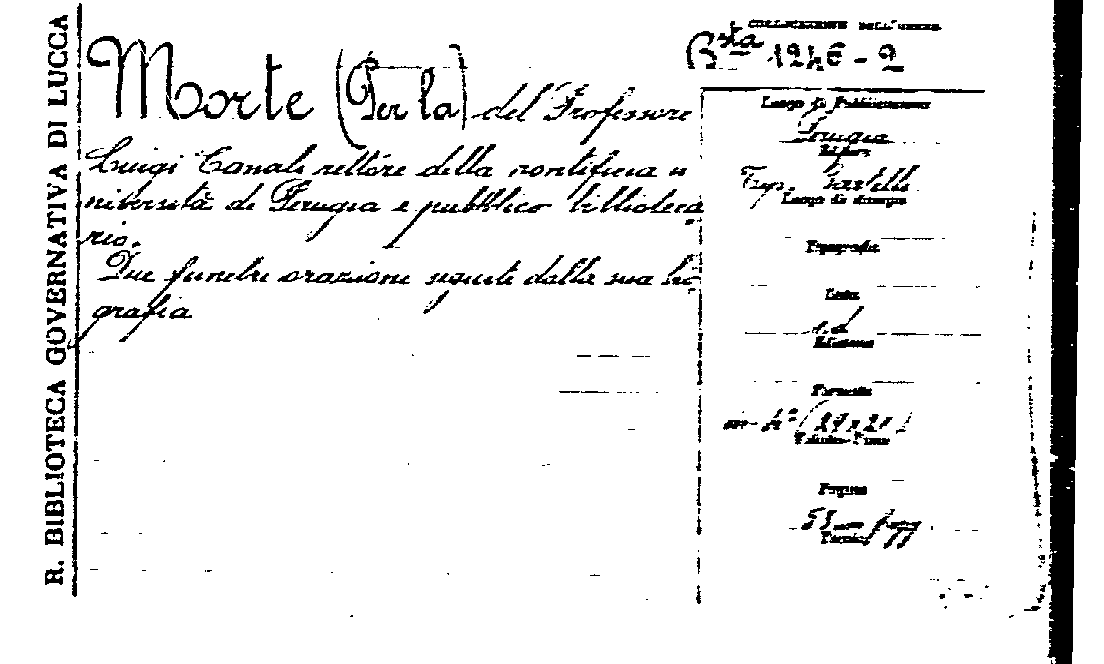 R. BIBLIOTECA GOVERNATIVA DI LUCCA
COLLOCAZIONE DELL'OPERA
Bsta 1246 - 2
Morte (Per la) del Professore
Luigi Canali rettore della pontificia u
niversità di Perugia e pubblico biblioteca
rio.
Due funebri orazione seguite dalla sua bi-
grafia
Luogo di Pubblicazione
Perugia
Editore
Tip.
Luogo di stampa
Tipografia
Data
s.d
Edizione
Formato
in-4° (29x21)
Pagine